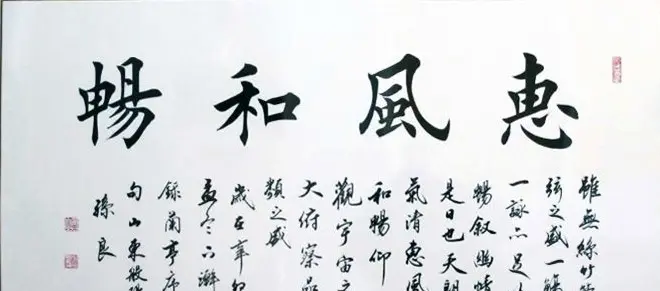 惠風和暢
雖無絲竹
弦之盛一觴
一詠亦足
暢敘幽情
是日也天朗
氣清惠風
和暢仰
觀宇宙之
大俯察品
類之盛
歲在辛
孟冬下澣
錄蘭亭序
句山東
孫良